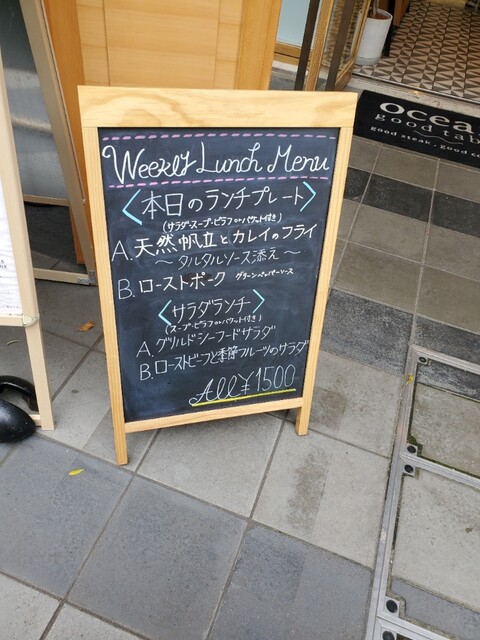 Weekly Lunch Menu
〈本日のランチプレート〉
(サラダ・スープ・ピラフorバケット付き)
A. 天然帆立とカレイのフライ
～タルタルソース添え～
B. ローストポーク グリーンペッパーソース
〈サラダランチ〉
(スープ・ピラフorバケット付き)
A. グリルドシーフードサラダ
B. ローストビーフと季節フルーツのサラダ
All ¥1500
ocea
good tab
good steak . good c